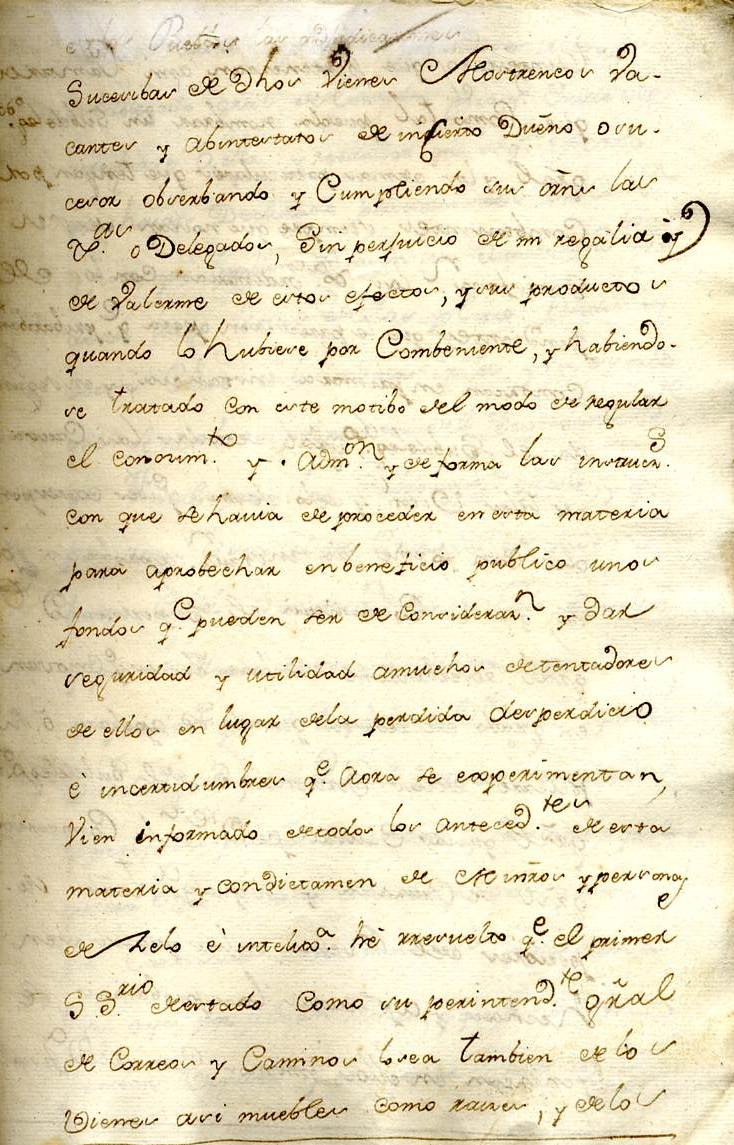 Sucesibas de dhos Vienes Mostrencos Va-
cantes y Abintestatos de incierto Dueño o su-
cesor obserbando y Cumpliendo sus orñs las
o Delegados, Sin perjuicio de mi regalia y
de Valerme de estos efectos, y sus productos
quando lo hubiese por Combeniente, y habiendo-
se tratado con este motibo del modo de regular
el conosim.to y Adm.on y de forma las instrucs.
con que se havia de proceder en esta materia
para aprobechar en beneficio publico unos
fondos q.e pueden ser de Considerazn. y dar
seguridad y utilidad amuchos detentadores
de ellos en lugar dela perdida desperdicio
è incertidumbres q.e Aora se experimentan,
Vien informado detodos los Anteced.tes de esta
materia y condictamen de Minros y personas
de Zelo è intelixa. hè rresuelto q.e el primer
S.Srio deestado Como superintend.te gral
de Correos y Caminos losea tambien de los
Vienes asi muebles como raices, y delos